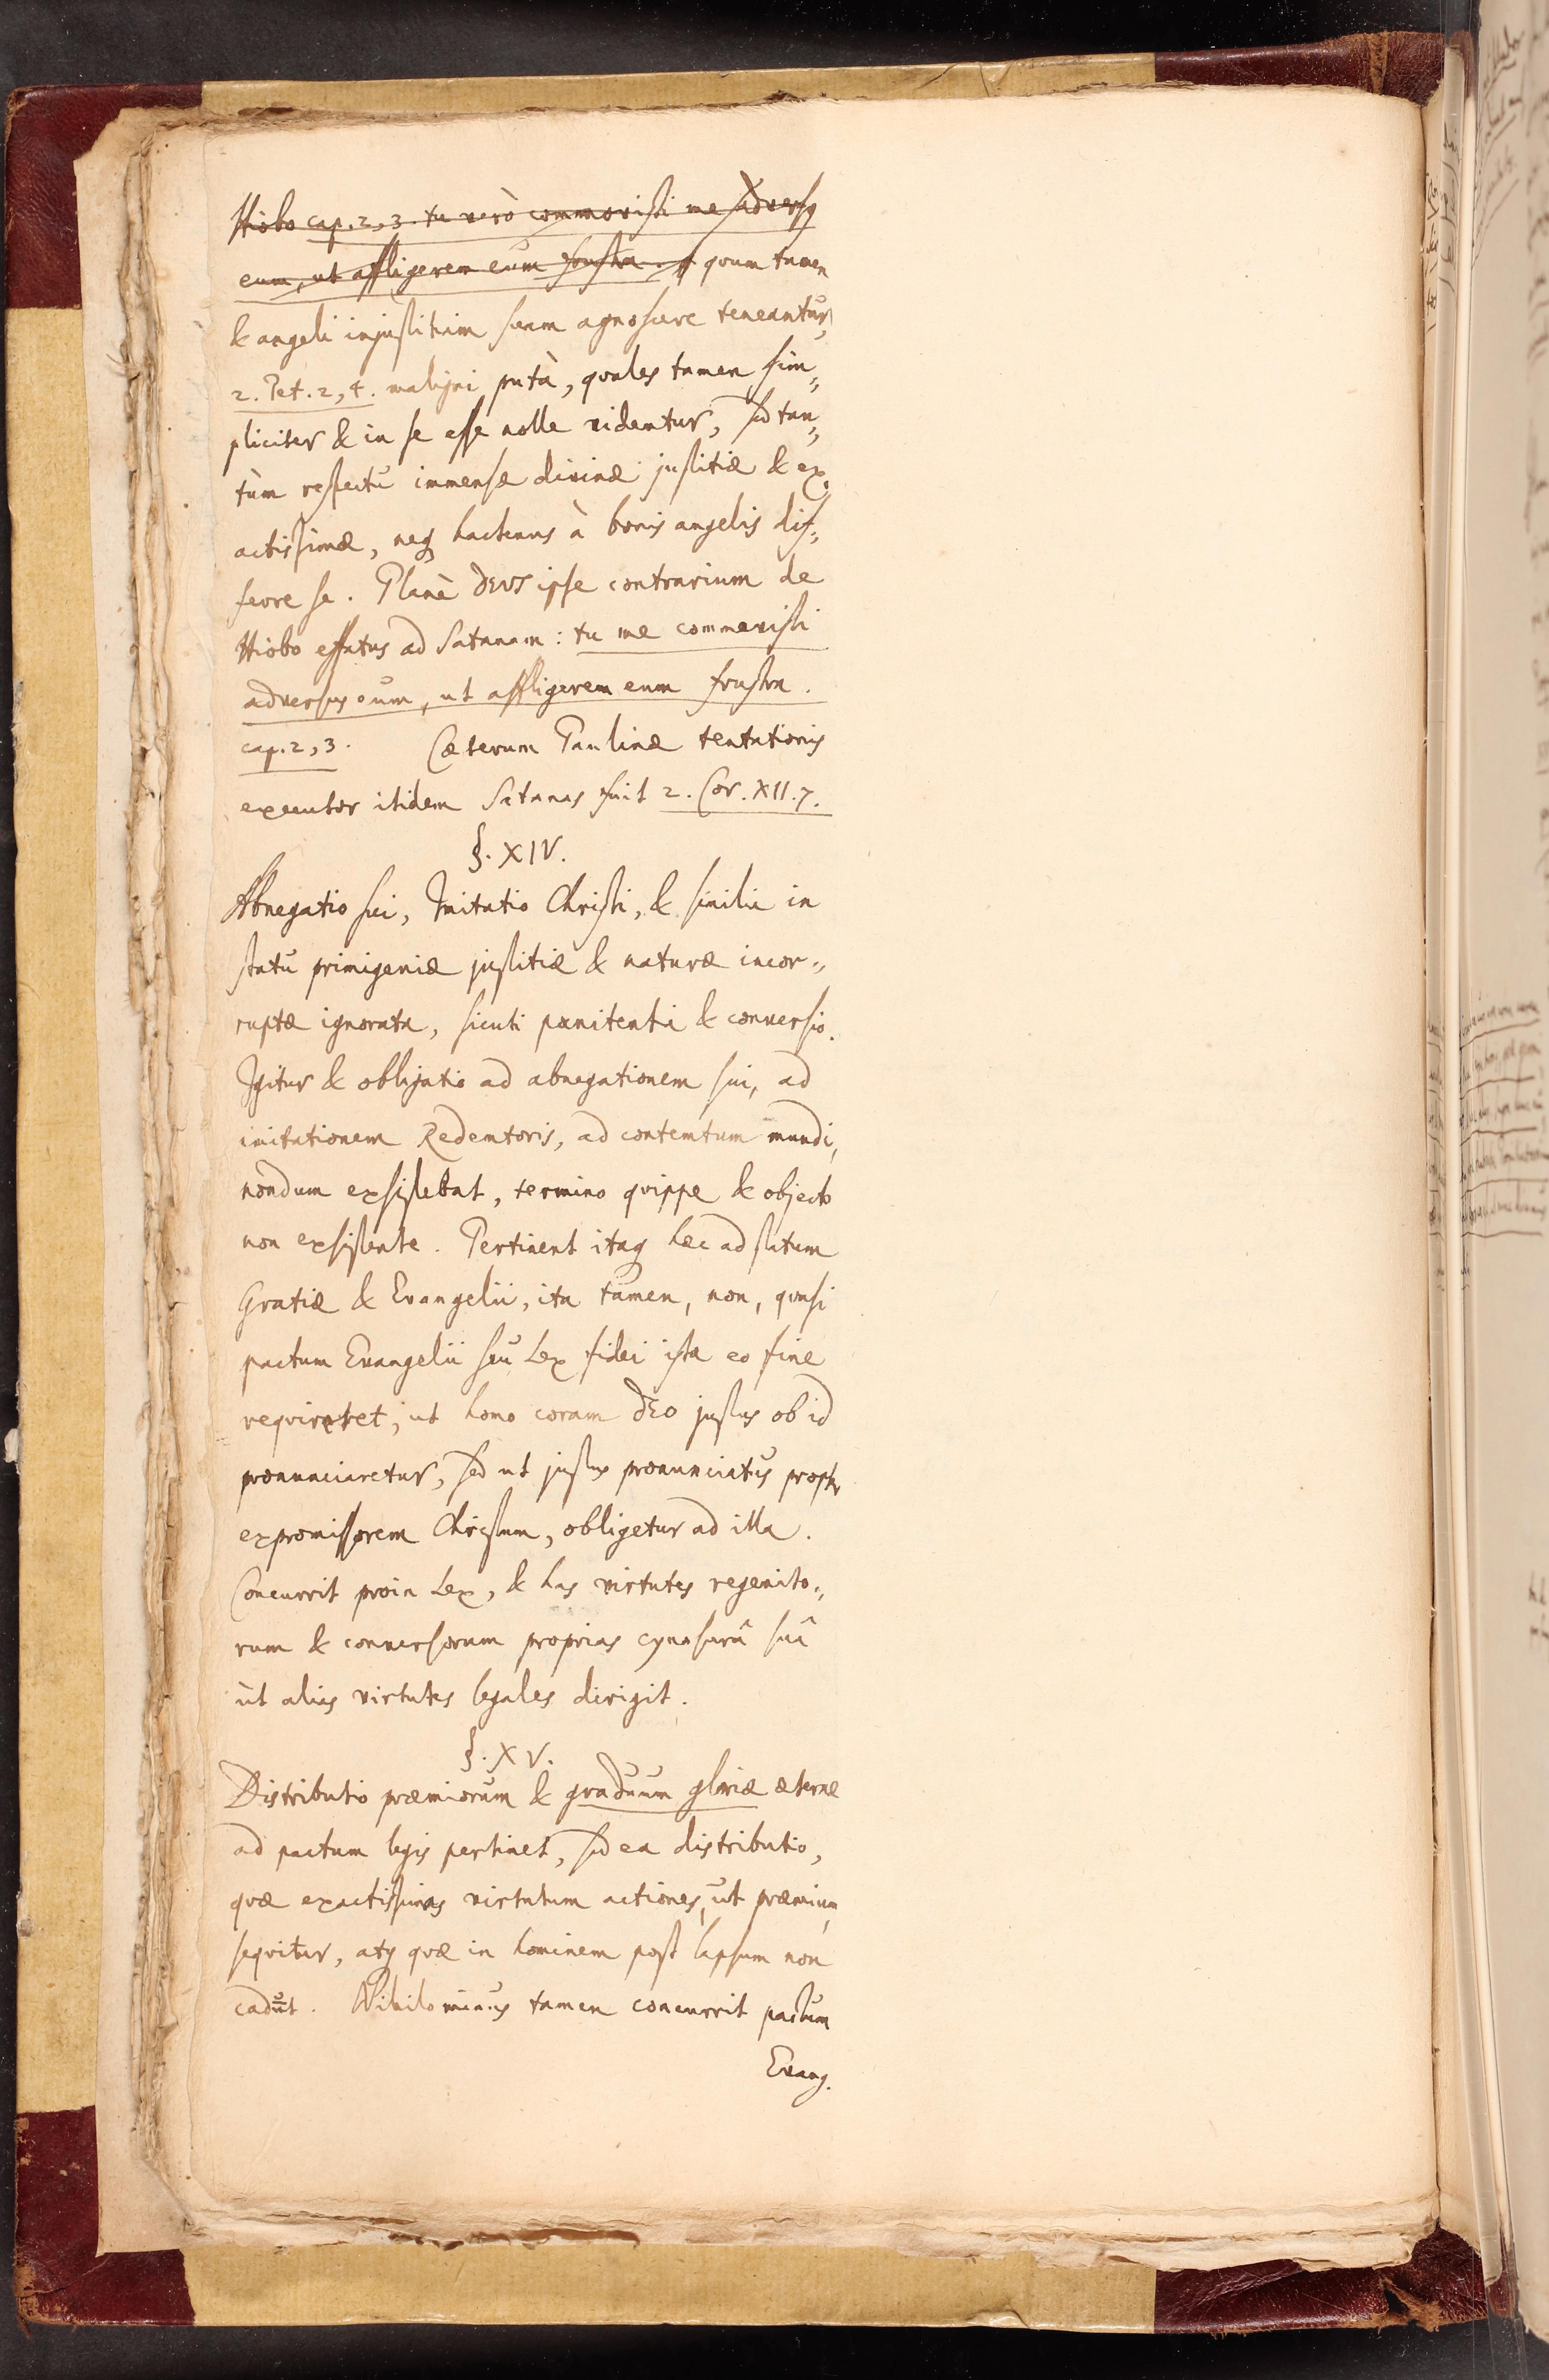 Hiobo cap. 2, 3. tu verò commovisti me adversq
eum, ut affligerem eum frustra. quum tamen
& angeli injustitiam suam agnoscere teneantur,
2. Pet. 2, 4. maligni putà, quales tamen sim„
pliciter & in se esse nolle videntur, sed tan„
tùm respectu immensæ divinæ justitiæ & ex„
actissimæ, neq hactenus à bonis angelis dif„
ferre se. Planè DEUS ipse contrarium de
Hiobo effatus ad Satanam: tu me commovisti
adversus eum, ut affligerem eum frustra.
cap. 2, 3. Cæterum Paulinæ tentationis
executor itidem Satanas fuit 2. Cor. XII. 7.
§. XIV.
Abnegatio sui, Imitatio Christi, & similia in
statu primigeniæ justitiæ & naturæ incor„
ruptæ ignorata, sicuti pœnitentia & conversio.
Igitur & obligatio ad abnegationem sui, ad
imitationem Redemtoris, ad contemtum mundi,
nondum exsistebat, termino qvippe & objecto
non exsistente. Pertinent itaq hæc ad statum
Gratiæ & Evangelii, ita tamen, non, qvasi
pactum Evangelii seu Lex fidei ista eo fine
reqvireret, ut homo coram DEO justus ob id
pronunciaretur, sed ut justus pronunciatus propter
expromissorem Christum, obligetur ad illa.
Concurrit proin Lex, & has virtutes regenito„
rum & conversorum proprias cynosurâ suâ
ut alias virtutes legales dirigit.
§. XV.
Distributio præmiorum & graduum gloriæ æternæ
ad pactum legis pertinet, sed ea distributio,
qvæ exactissimas virtutum actiones, ut præmium,
seqvitur, atq qvæ in hominem post lapsum non
cadūt. Nihilo minus tamen concurrit pactum
Evang.